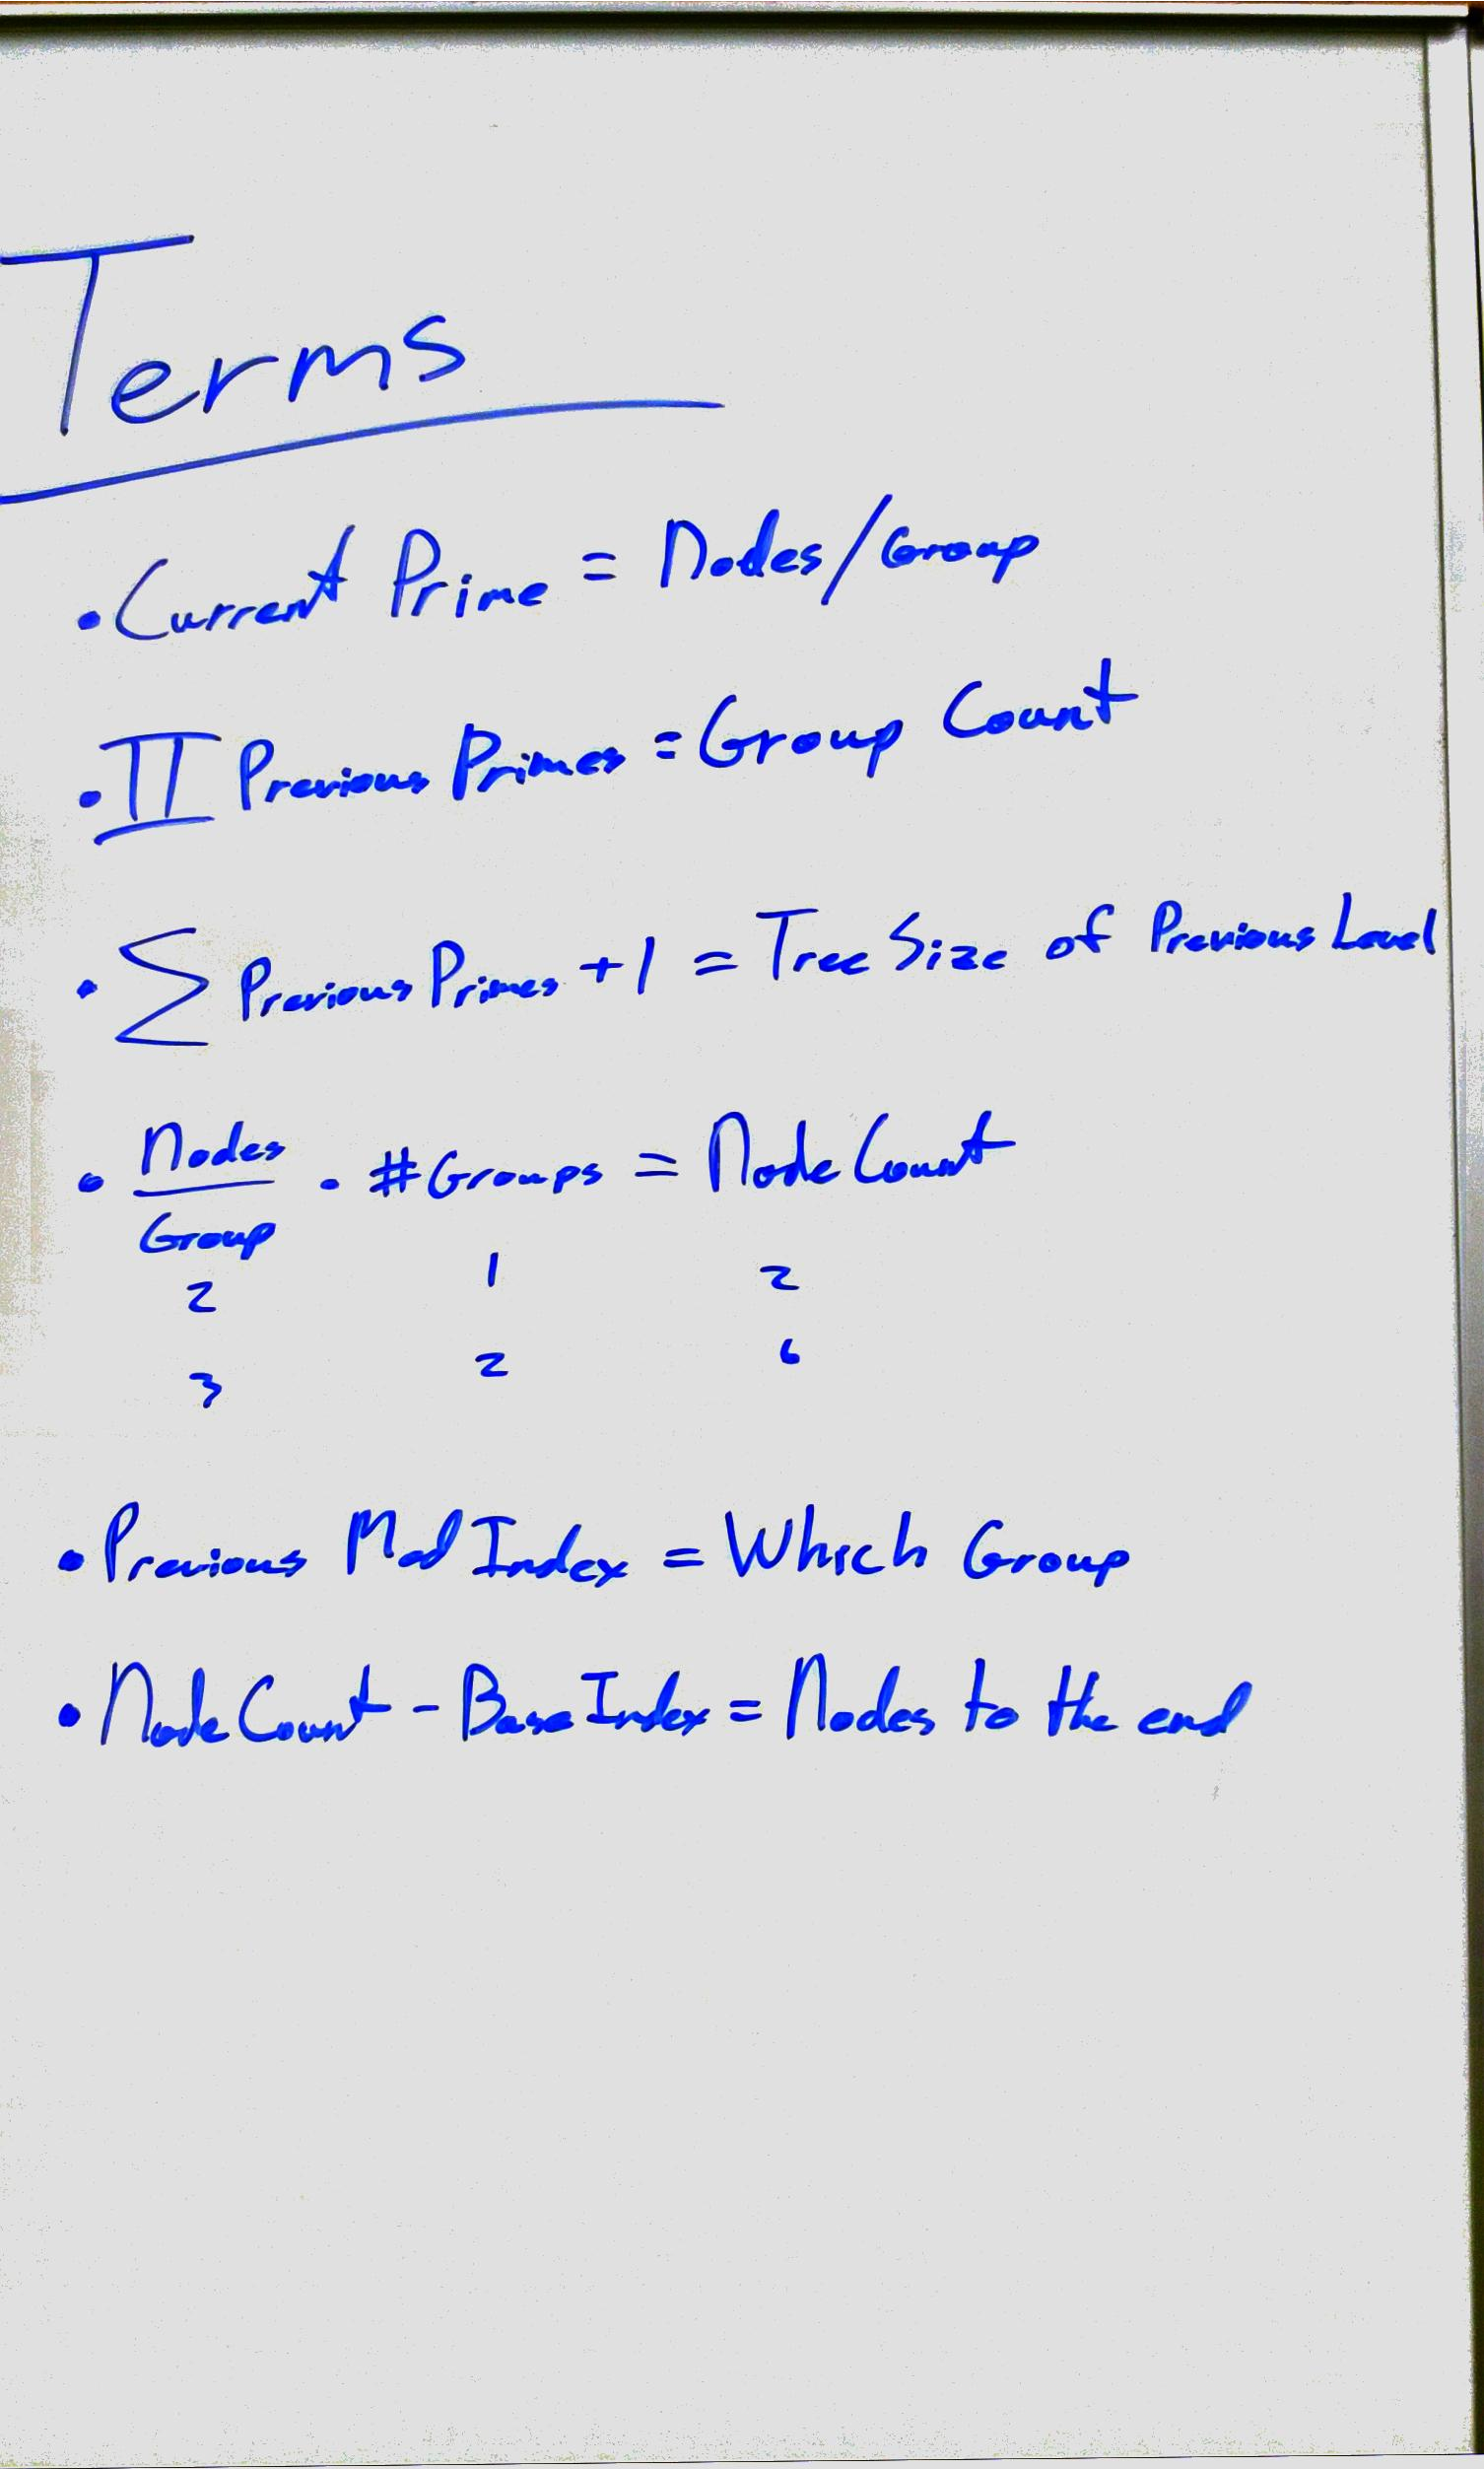 Terms
• Current Prime = Nodes/Group
• ∏ Previous Primes = Group Count
• ∑ Previous Primes + 1 = Tree Size of Previous Level
• Nodes/Group · # Groups = Node Count
2 1 2
3 2 6
• Previous Mod Index = Which Group
• Node Count - Base Index = Nodes to the end